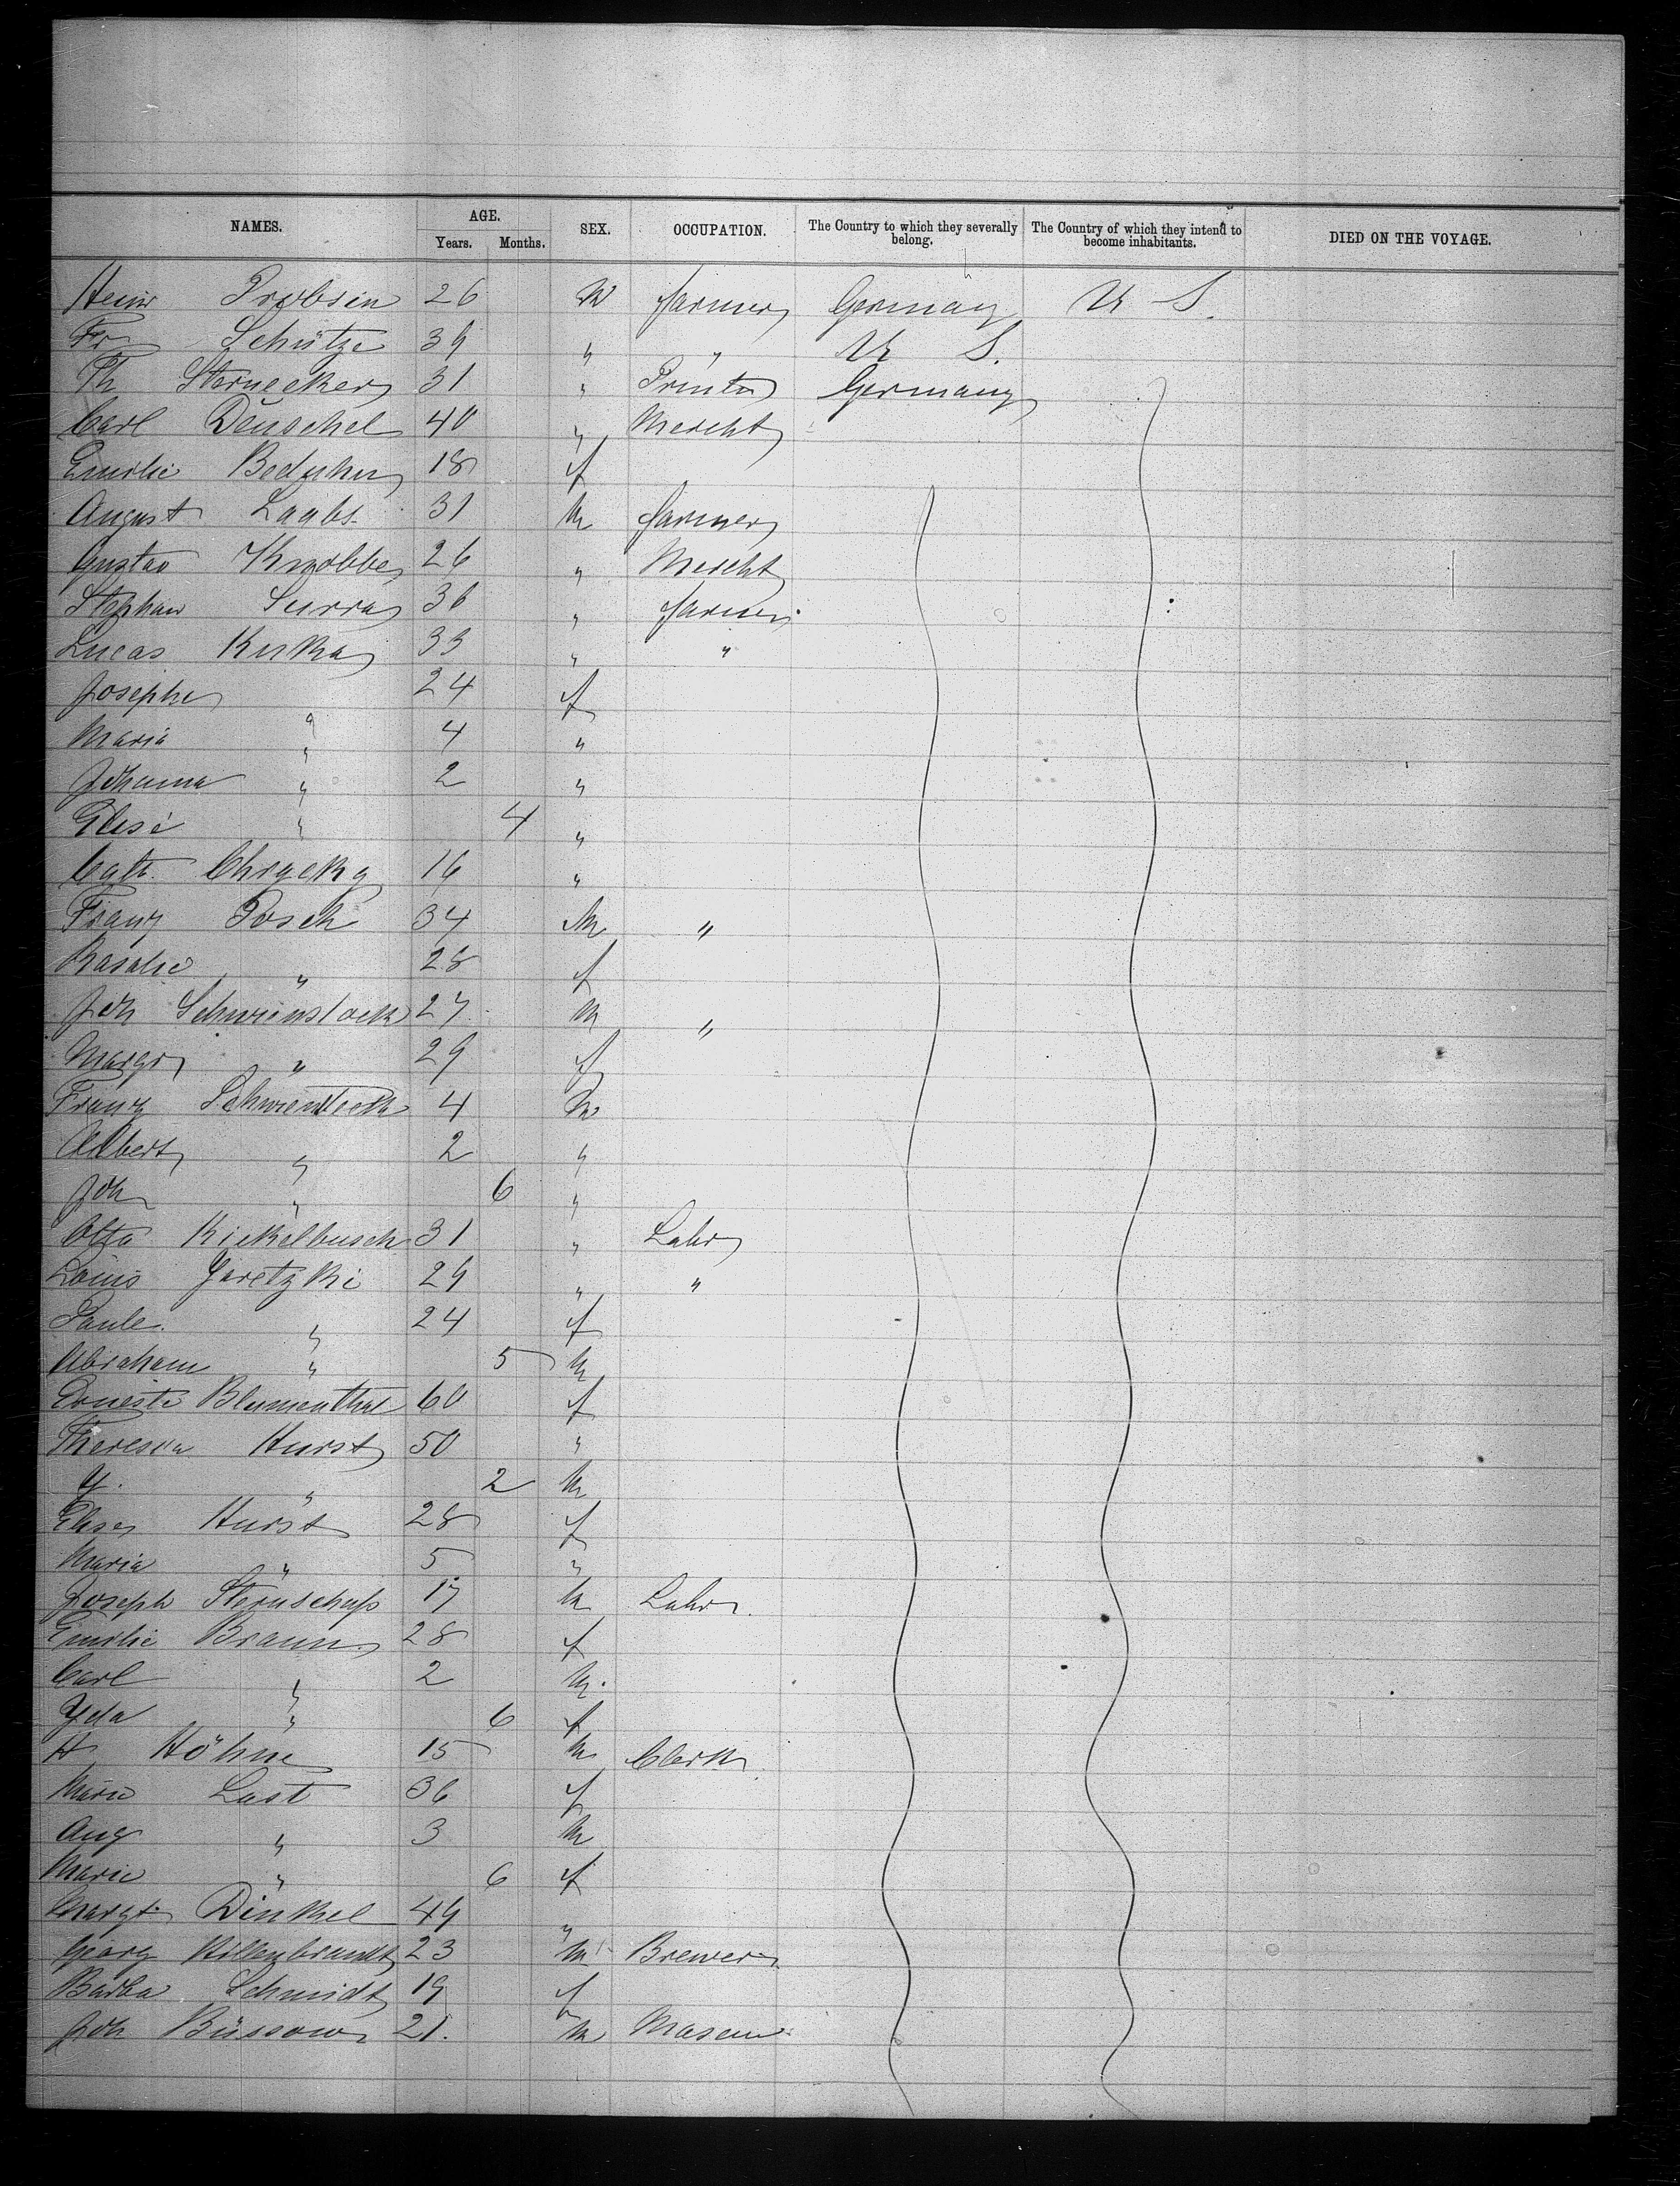 NAMES. AGE. SEX. OCCUPATION. The Country to which they severally belong. The Country of which they intend to become inhabitants. DIED ON THE VOYAGE.
Years. Months.
Heinr 26 M farmer Germany U S.
Fr Schütze 39 " " U S.
Th Sternecker 31 " Printer Germany
Carl Deuschel 40 " Mercht
Emilie 18 f
August Laabs 31 M farmer
Gustav Knobbe 26 " Mercht
Stephan Surra 36 " farmer
Lucas Kuska 33 " "
Josepha " 24 f
Maria " 4 "
Johanna " 2 "
Elise " 4 "
Cath. 16 "
Franz Posch 34 M "
Rosalie " 28 f
Joh Schwienstock 27 M "
Margr " 29 f
Franz Schwensteck 4 M
Albert " 2 "
Joh " 6 "
Otto Kickelbusch 31 " Labr
Louis Jaretzki 29 " "
Paule " 24 f
Abraham " 5 M
Ernesti Blumenthal 60 f
Theresia Hurst 50 "
G. " 2 M
Elise Hurst 28 f
Maria " 5 "
Joseph Sternschuss 17 M Labr.
Emilie Braun 28 f
Carl " 2 M.
Ida " 6 f
H Höhne 15 M Clerk
Marie Last 36 f
Aug " 3 M
Marie " 6 f
Margt Dinkel 49 "
Georg Hillenbrandt 23 M Brewer
Barba Schmidt 19 f
Joh Büssow 21. M Mason